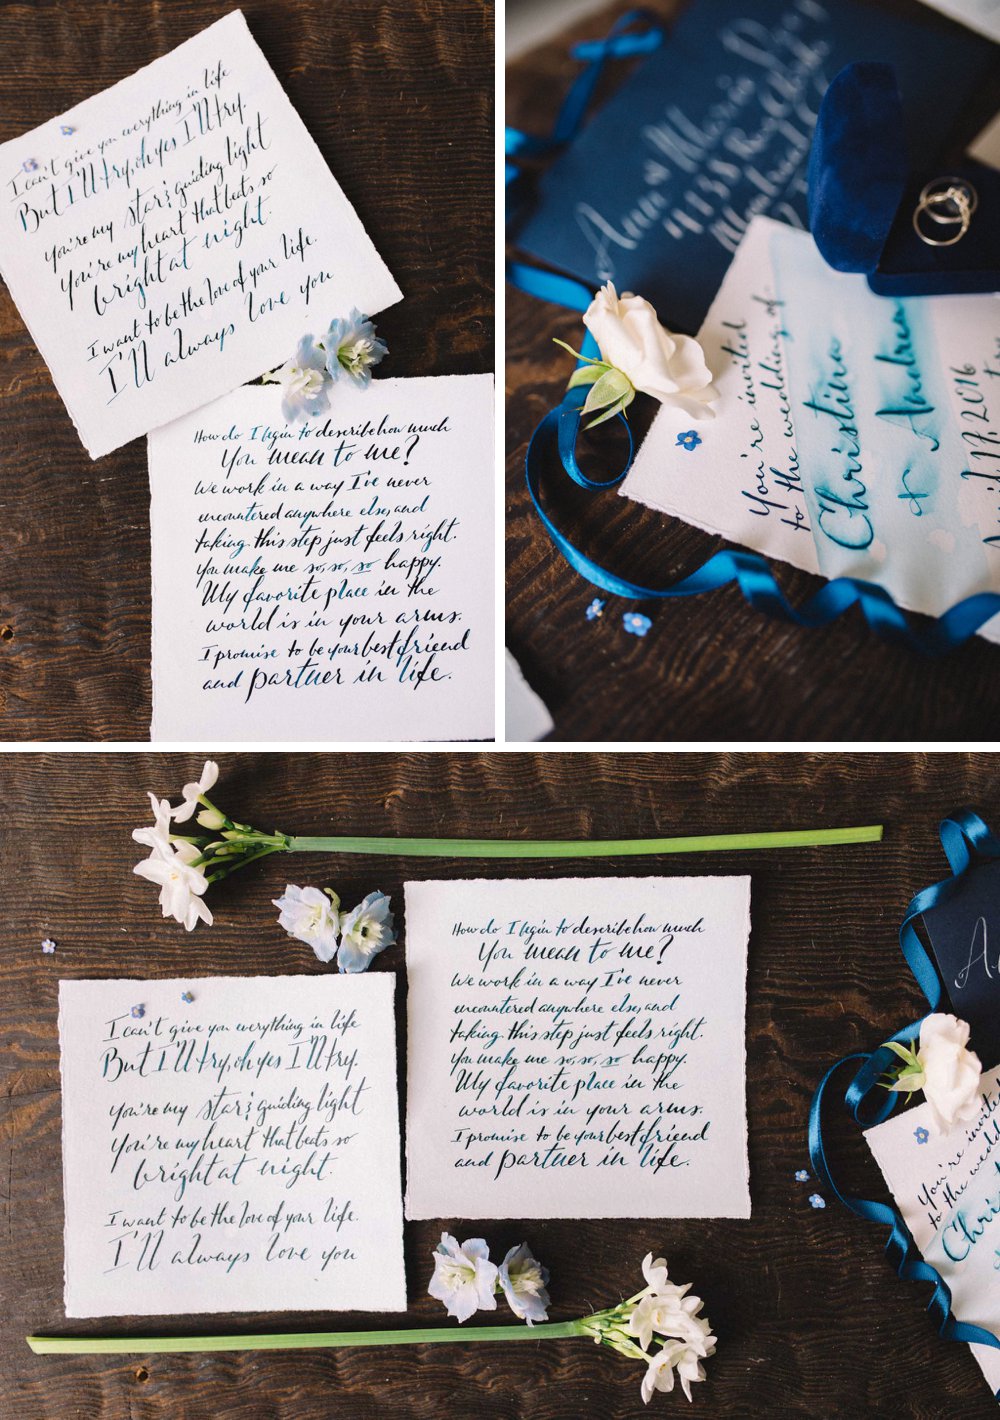 I can't give you everything in life
But I'll try, oh yes I'll try.
You're my star & guiding light
You're my heart that beats so
bright at night.
I want to be the love of your life.
I'll always love you
How do I begin to describe how much
You mean to me?
We work in a way I've never
encountered anywhere else, and
taking this step just feels right.
You make me so, so, so happy.
My favorite place in the
world is in your arms.
I promise to be your best friend
and partner in life.
You're invited
to the wedding of
Christina
& Andrew
I can't give you everything in life
But I'll try, oh yes I'll try.
You're my star & guiding light
You're my heart that beats so
bright at night.
I want to be the love of your life.
I'll always love you
How do I begin to describe how much
You mean to me?
We work in a way I've never
encountered anywhere else, and
taking this step just feels right.
You make me so, so, so happy.
My favorite place in the
world is in your arms.
I promise to be your best friend
and partner in life.
You're invited
to the